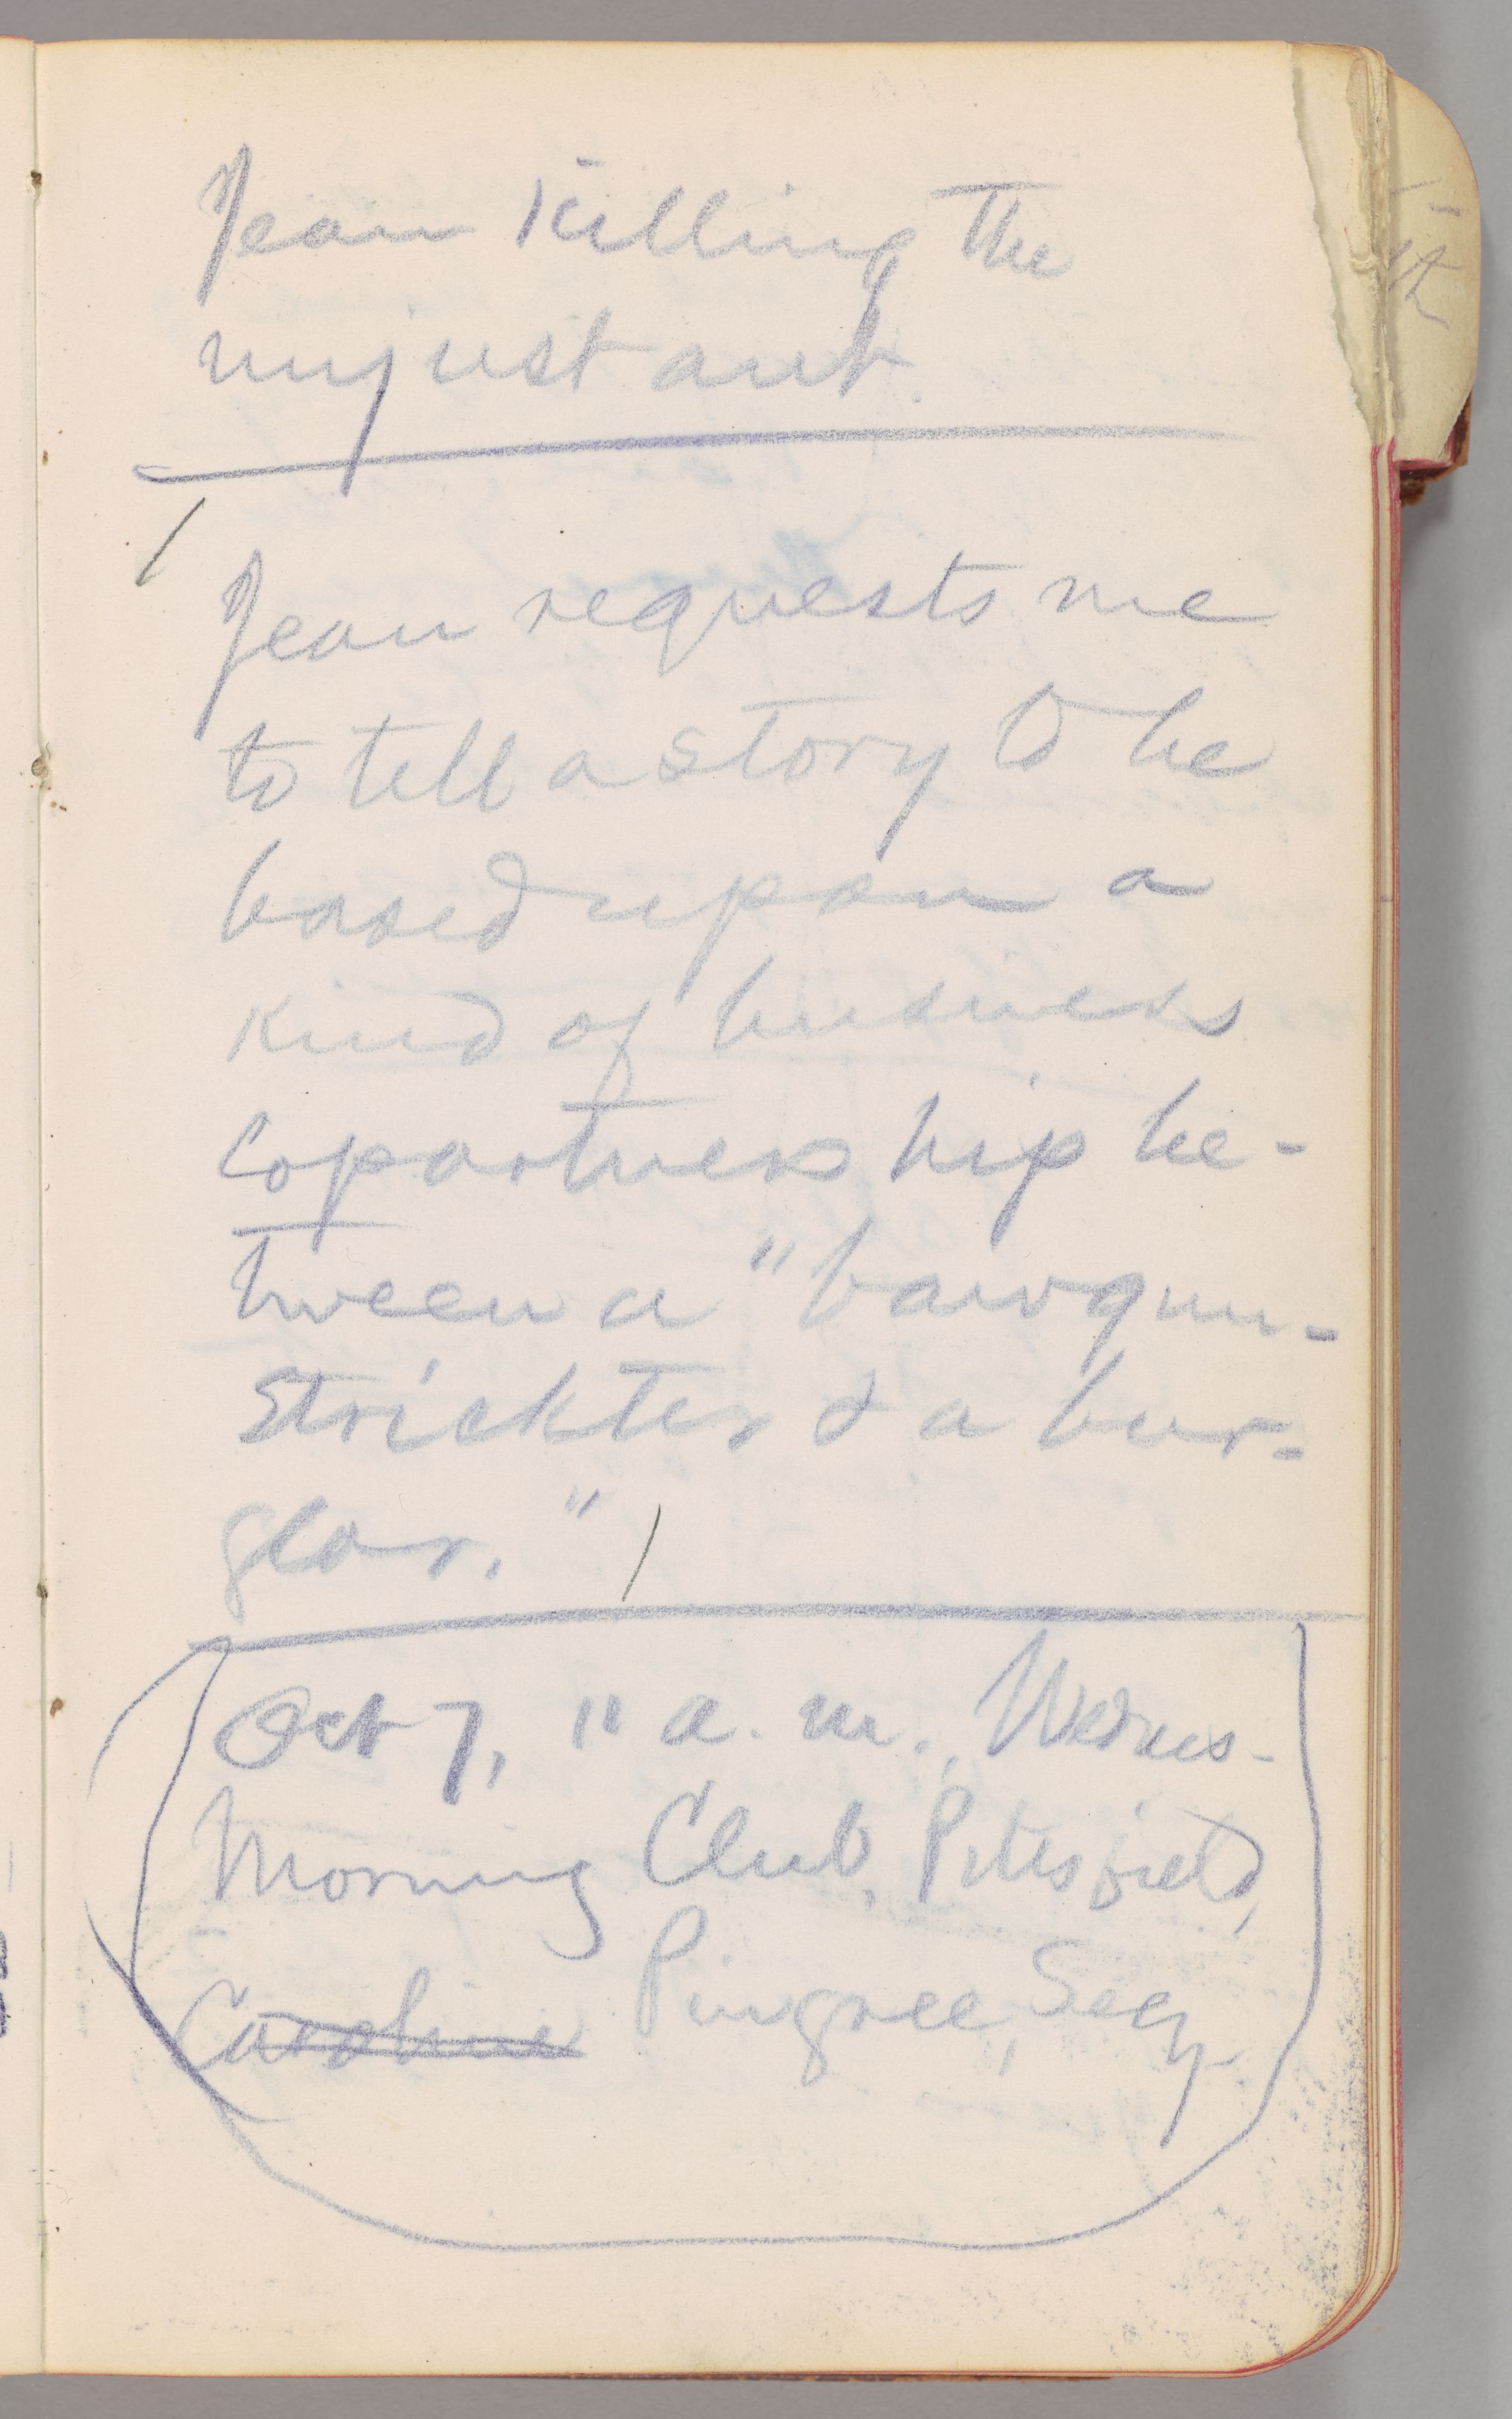 Jean killing the
unjust ant.
Jean requests me
to tell a story to be
based upon a
kind of business
copartnership be-
tween a "bawgun-
strickter & a bur-
glar."
Oct 7, 11 a. m., Wednes-
Morning Club, Pittsfield,
Caroline Pingree, Secy